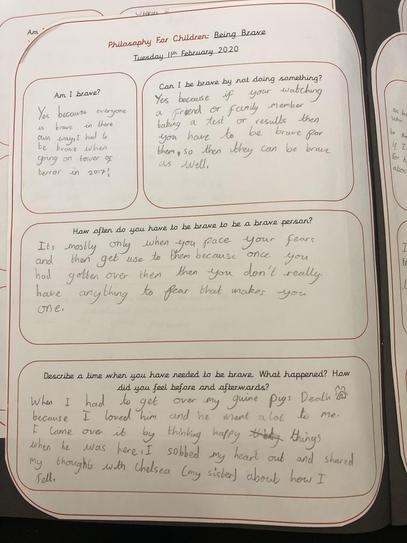 Philosophy For Children: Being Brave
Tuesday 11th February 2020
Am I brave?
Yes because everyone
is brave in there
own way. I had to
be brave when
going on tower of
terror in 2017!
Can I be brave by not doing something?
Yes because if your watching
a friend or family member
taking a test or results then
you have to be brave for
them, so then they can be brave
as well.
How often do you have to be brave to be a brave person?
Its mostly only when you face your fears
and then get use to them because once you
had gotten over then then you don't really
have anything to fear that makes you
one.
Describe a time when you have needed to be brave. What happened? How
did you feel before and afterwards?
When I had to get over my guine pigs Death
because I loved him and he ment a lot to me.
I came over it by thinking happy things
when he was here. I sobbed my heart out and shared
my thoughts with Chelsea (my sister) about how I
fell.